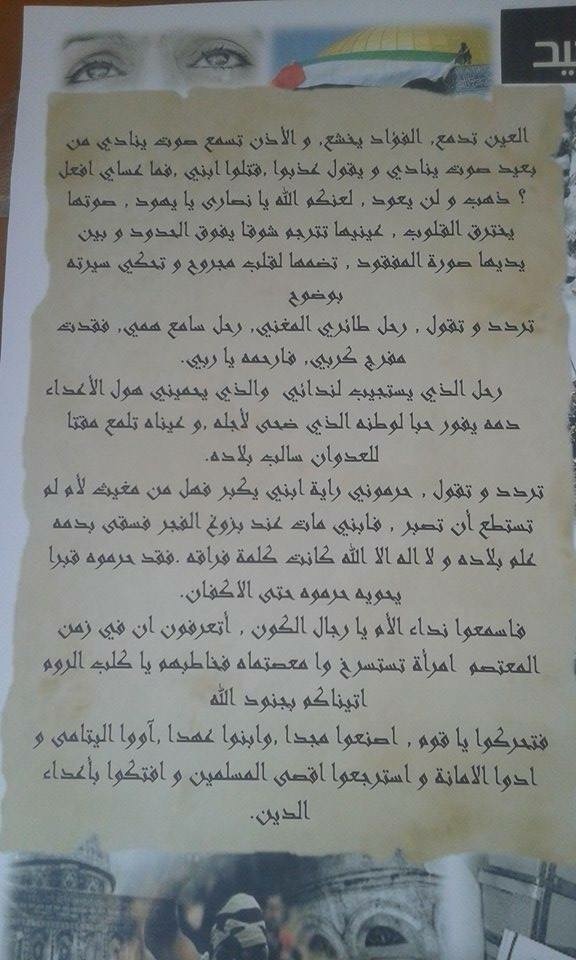 يد
العين تدمع, الفؤاد يخشع, و الأذن تسمع صوت ينادي من
بعيد صوت ينادي و يقول عذبوا ,قتلوا ابني ,فما عساي افعل
؟ ذهب و لن يعود , لعنكم الله يا نصارى يا يهود , صوتها
يخترق القلوب , عينيها تترجم شوقا يفوق الحدود و بين
يديها صورة المفقود , تضمها لقلب مجروح و تحكي سيرته
بوضوح
تردد و تقول , رحل طائري المغني, رحل سامع همي, فقدت
مفرج كربي, فارحمه يا ربي.
رحل الذي يستجيب لندائي والذي يحميني هول الأعداء
دمه يفور حبا لوطنه الذي ضحى لأجله ,و عيناه تلمع مقتا
للعدوان سالب بلاده.
تردد و تقول , حرموني راية ابني يكبر فهل من مغيث لأم لم
تستطع أن تصبر , فابني مات عند بزوغ الفجر فسقى بدمه
علم بلاده و لا اله الا الله كانت كلمة فراقه .فقد حرموه قبرا
يحويه حرموه حتى الاكفان.
فاسمعوا نداء الأم يا رجال الكون , أتعرفون ان في زمن
المعتصم امرأة تستسرخ وا معصتماه فخاطبهم يا كلب الروم
اتيناكم بجنود الله
فتحركوا يا قوم , اصنعوا مجدا ,وابنوا عمدا ,آووا اليتامى و
ادوا الامانة و استرجعوا اقصى المسلمين و افتكوا بأعداء
الدين.